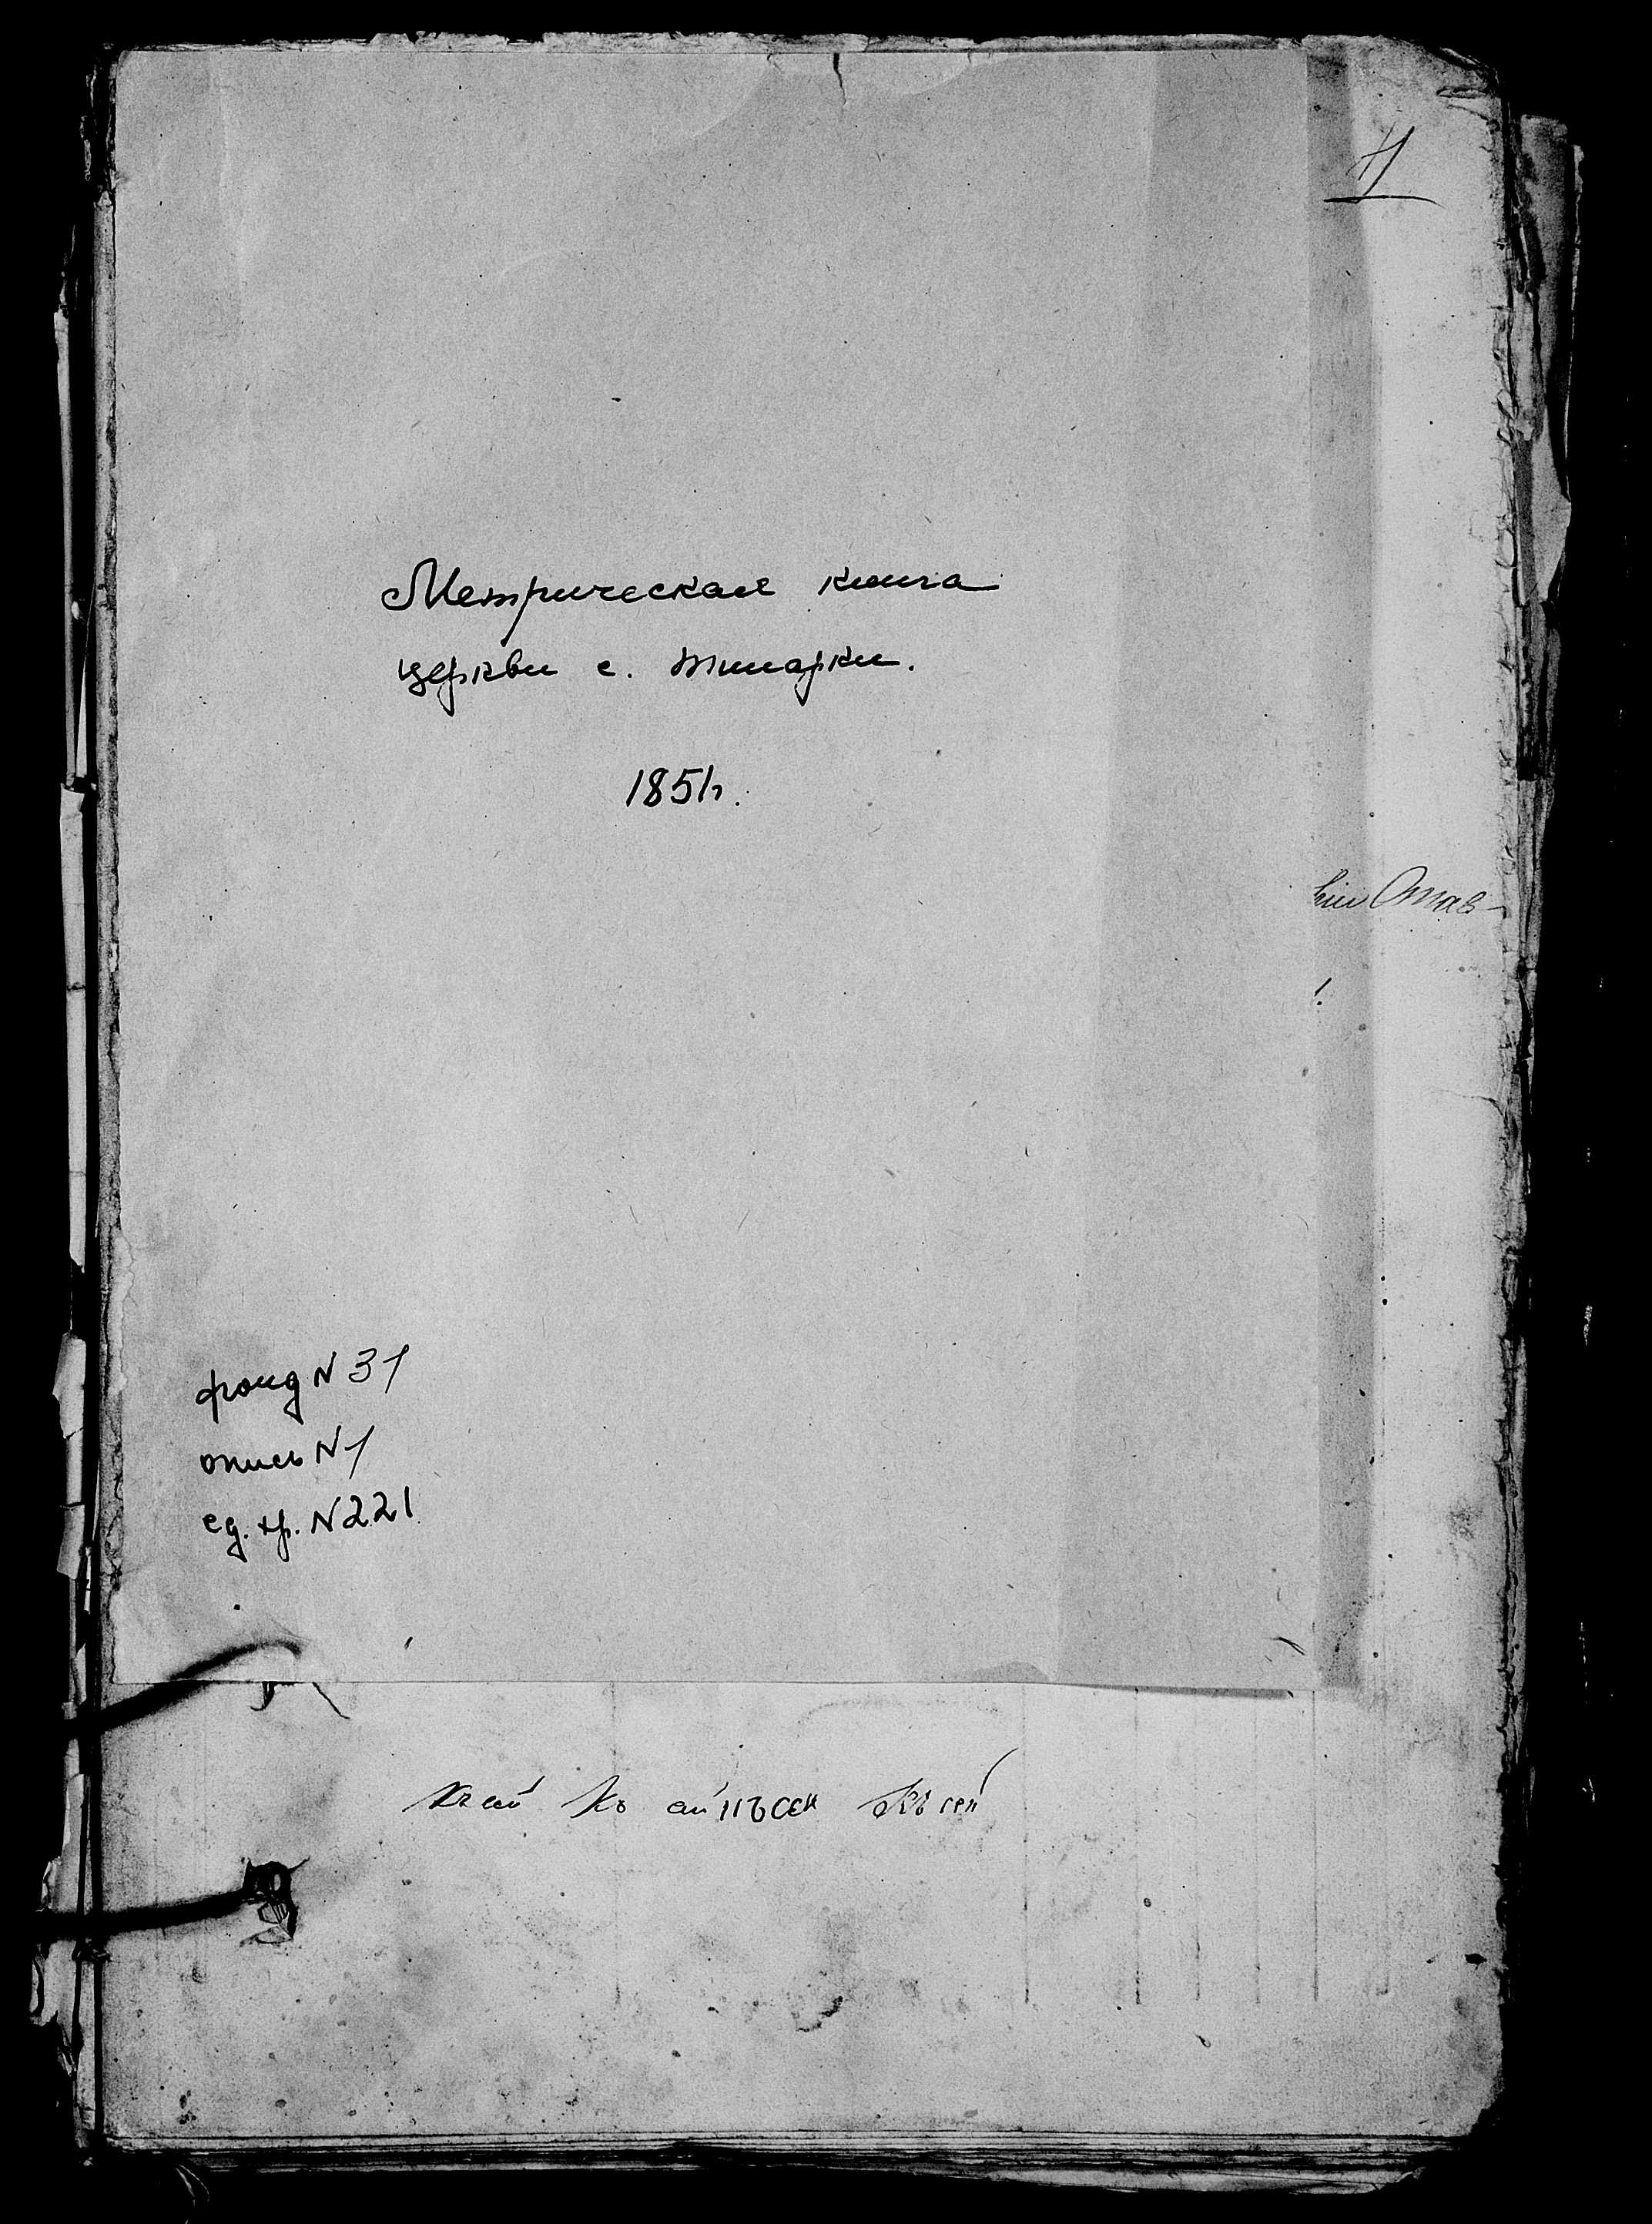 1
Метрическая книга
церкви с. Тимарки.
1851г.
Став-
фонд N 31
опись N 1
ед. хр. N 221